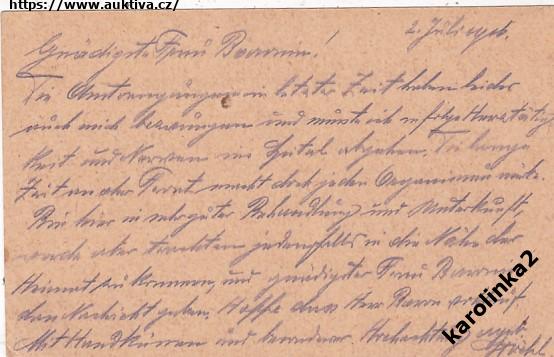 https://www.auktiva.cz/
2. Juli
Gnädigste Frau Baronin!
Die Anstrengungen in letzter Zeit haben leider
auch mich bezwungen und mußte ich infolge Herztätig
keit und Nerven ins Spital abgehen. Die lange
Zeit an der Front macht doch jeden Organismus
Bin hier in sehr guter Behandlung und Unterkunft,
werde aber trachten jedenfalls in die Nähe der
Heimat zu kommen, und gnädigster Frau Baronin
dann Nachricht geben. Hoffe dass Herr Baron
Mit Handküssen und besonderer Hochachtung
karolinka2